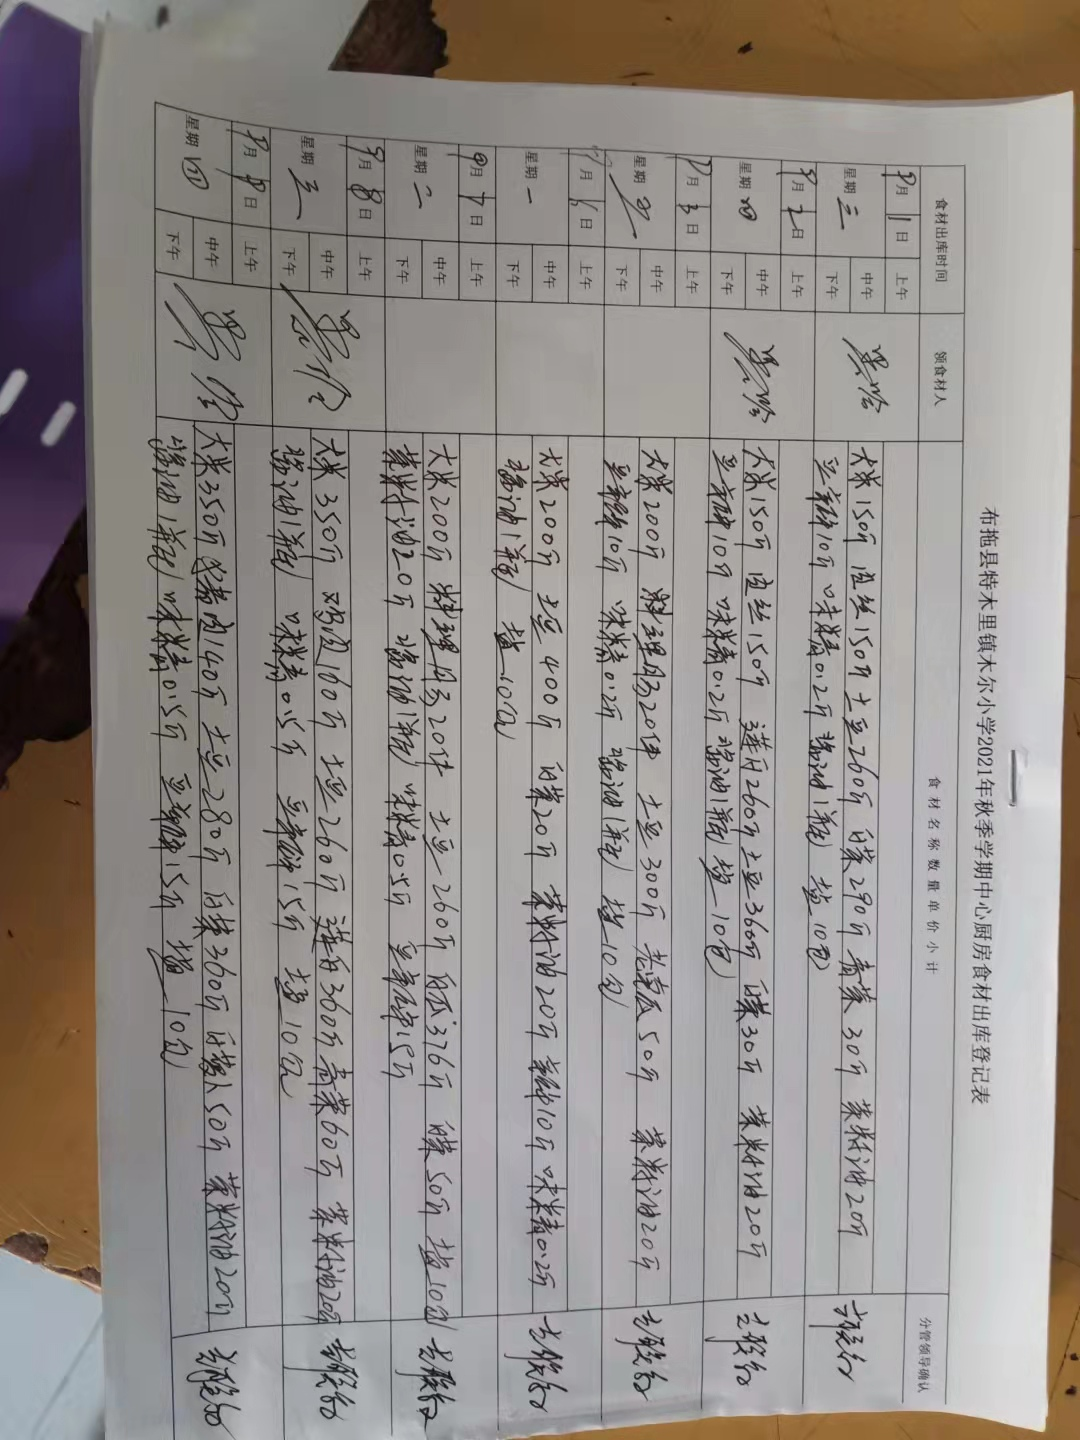 布拖县特木里镇木尔小学2021年秋季学期中心厨房食材出库登记表
食材出库时间 领食材人 食材名称数量单价小计 分管领导确认
9月1日 星期三 上午 中午 下午
大米150斤 肉丝150斤 土豆260斤 白菜290斤 青菜30斤 菜籽油20斤
豆瓣10斤 味精0.2斤 酱油1瓶 盐10包
9月2日 星期四 上午 中午 下午
大米150斤 肉丝150斤 莲白260斤 土豆360斤 白菜30斤 菜籽油20斤
豆瓣10斤 味精0.2斤 酱油1瓶 盐10包
9月3日 星期五 上午 中午 下午
大米200斤 20件 土豆300斤 老南瓜50斤 菜籽油20斤
豆瓣10斤 味精0.2斤 酱油1瓶 盐10包
月 日 星期一 上午 中午 下午
大米200斤 土豆400斤 白菜20斤 菜籽油20斤 10斤 味精0.2斤
酱油1瓶 盐10包
9月7日 星期二 上午 中午 下午
大米200斤 20件 土豆260斤 白瓜376斤 白菜50斤 盐10包
菜籽油20斤 酱油1瓶 味精0.5斤 豆瓣15斤
9月8日 星期三 上午 中午 下午
大米350斤 鸡肉160斤 土豆260斤 莲白360斤 青菜60斤 菜籽油20斤
酱油1瓶 味精0.5斤 豆瓣15斤 盐10包
月8日 星期四 上午 中午 下午
大米350斤 肉140斤 土豆280斤 白菜360斤 50斤 菜籽油20斤
酱油1瓶 味精0.5斤 豆瓣15斤 盐10包